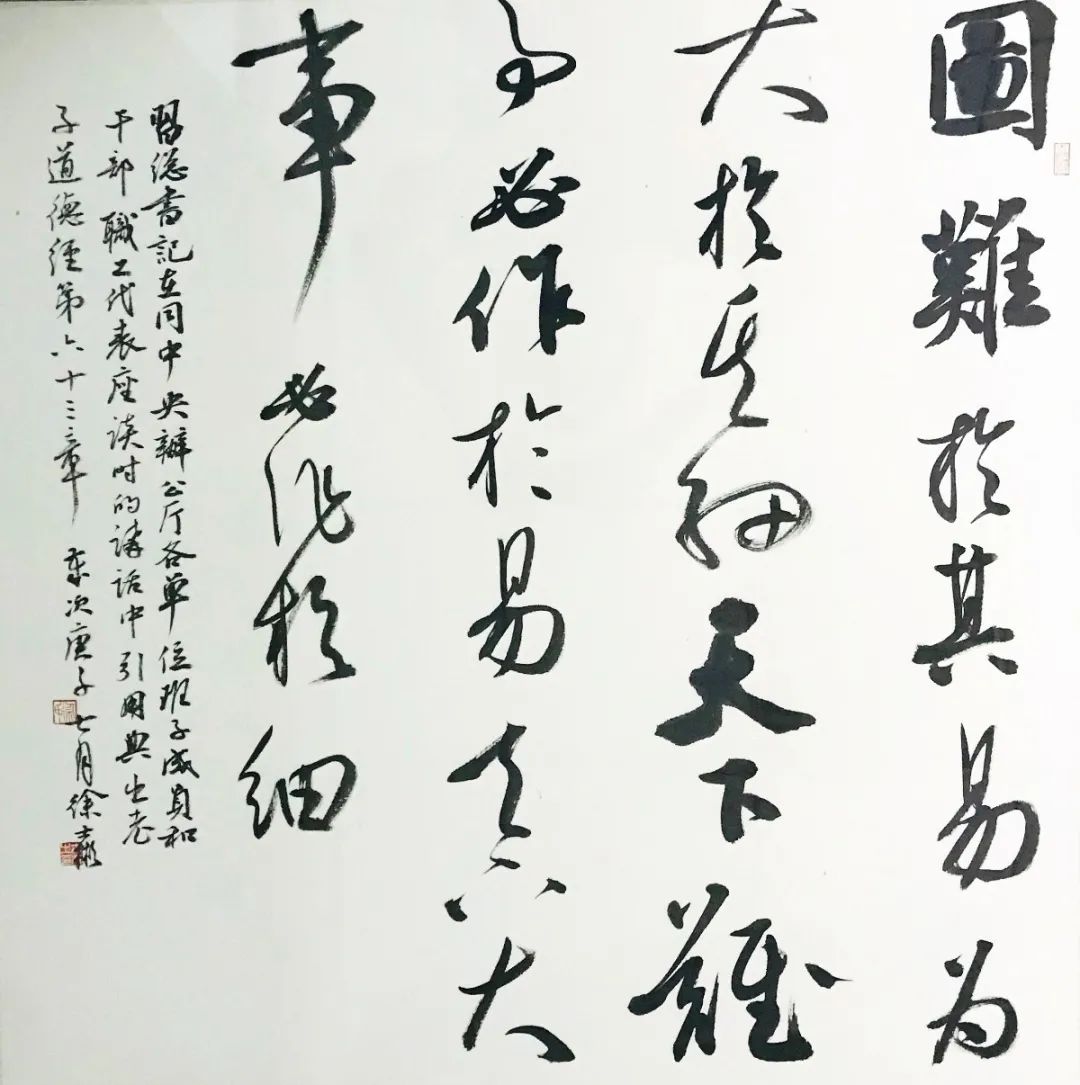 圖難於其易为
大於其細天下難
事必作於易天下大
事必作於細
習總書記在同中央辦公厅各單位班子成員和
干部職工代表座談时的講話中引用典出老
子道德經第六十三章 庚子七月徐